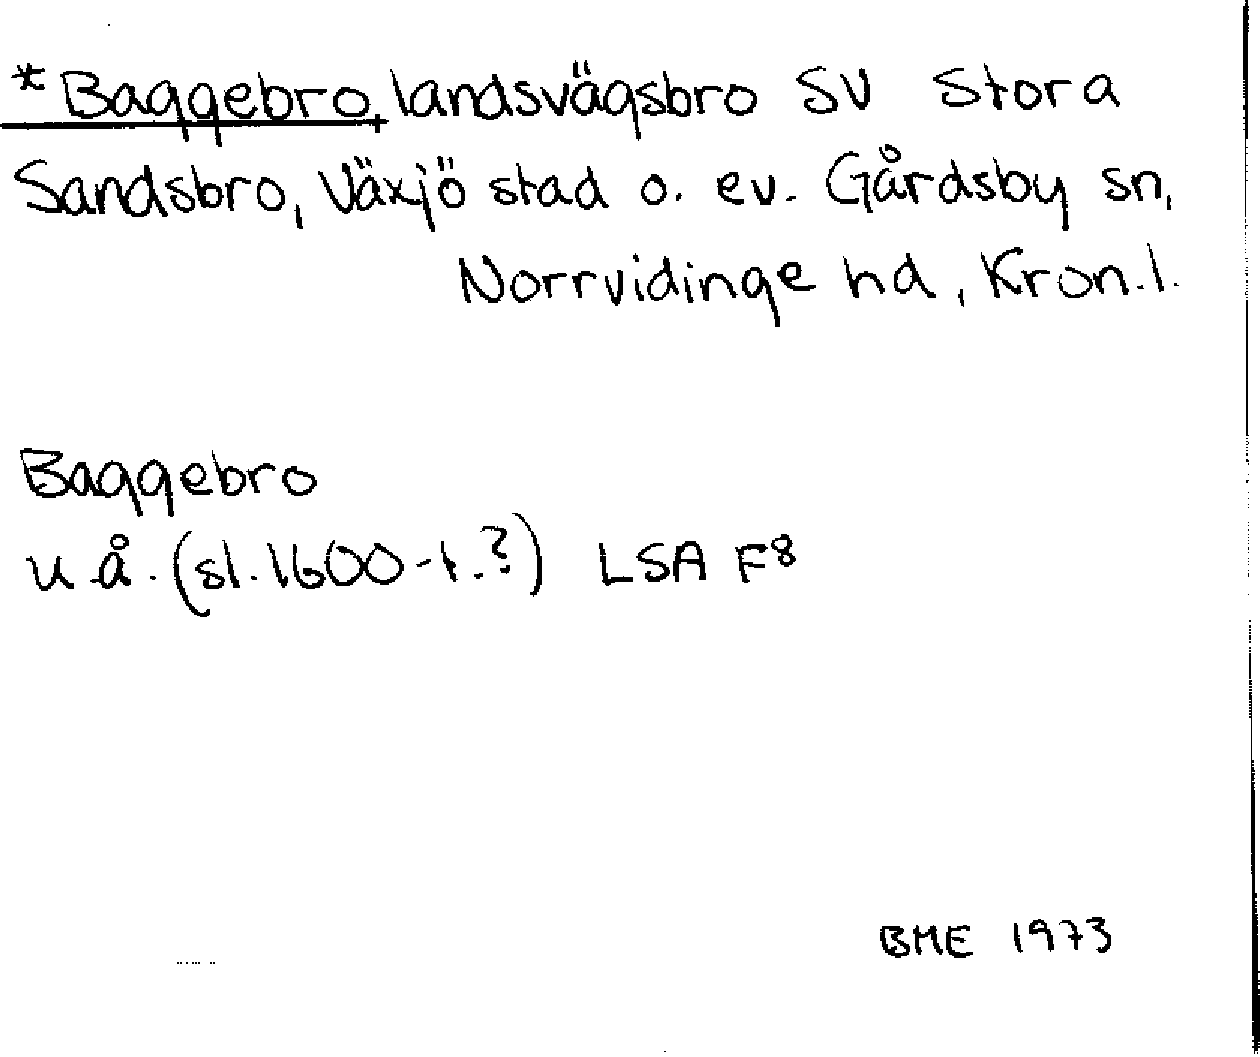 *Baggebro, landsvägsbro SV Stora
Sandsbro, Växjö stad o. ev. Gårdsby sn,
Norrvidinge hd, Kron.l.
Baggebro
u.å. (sl. 1600-t.?) LSA F⁸
BME 1973